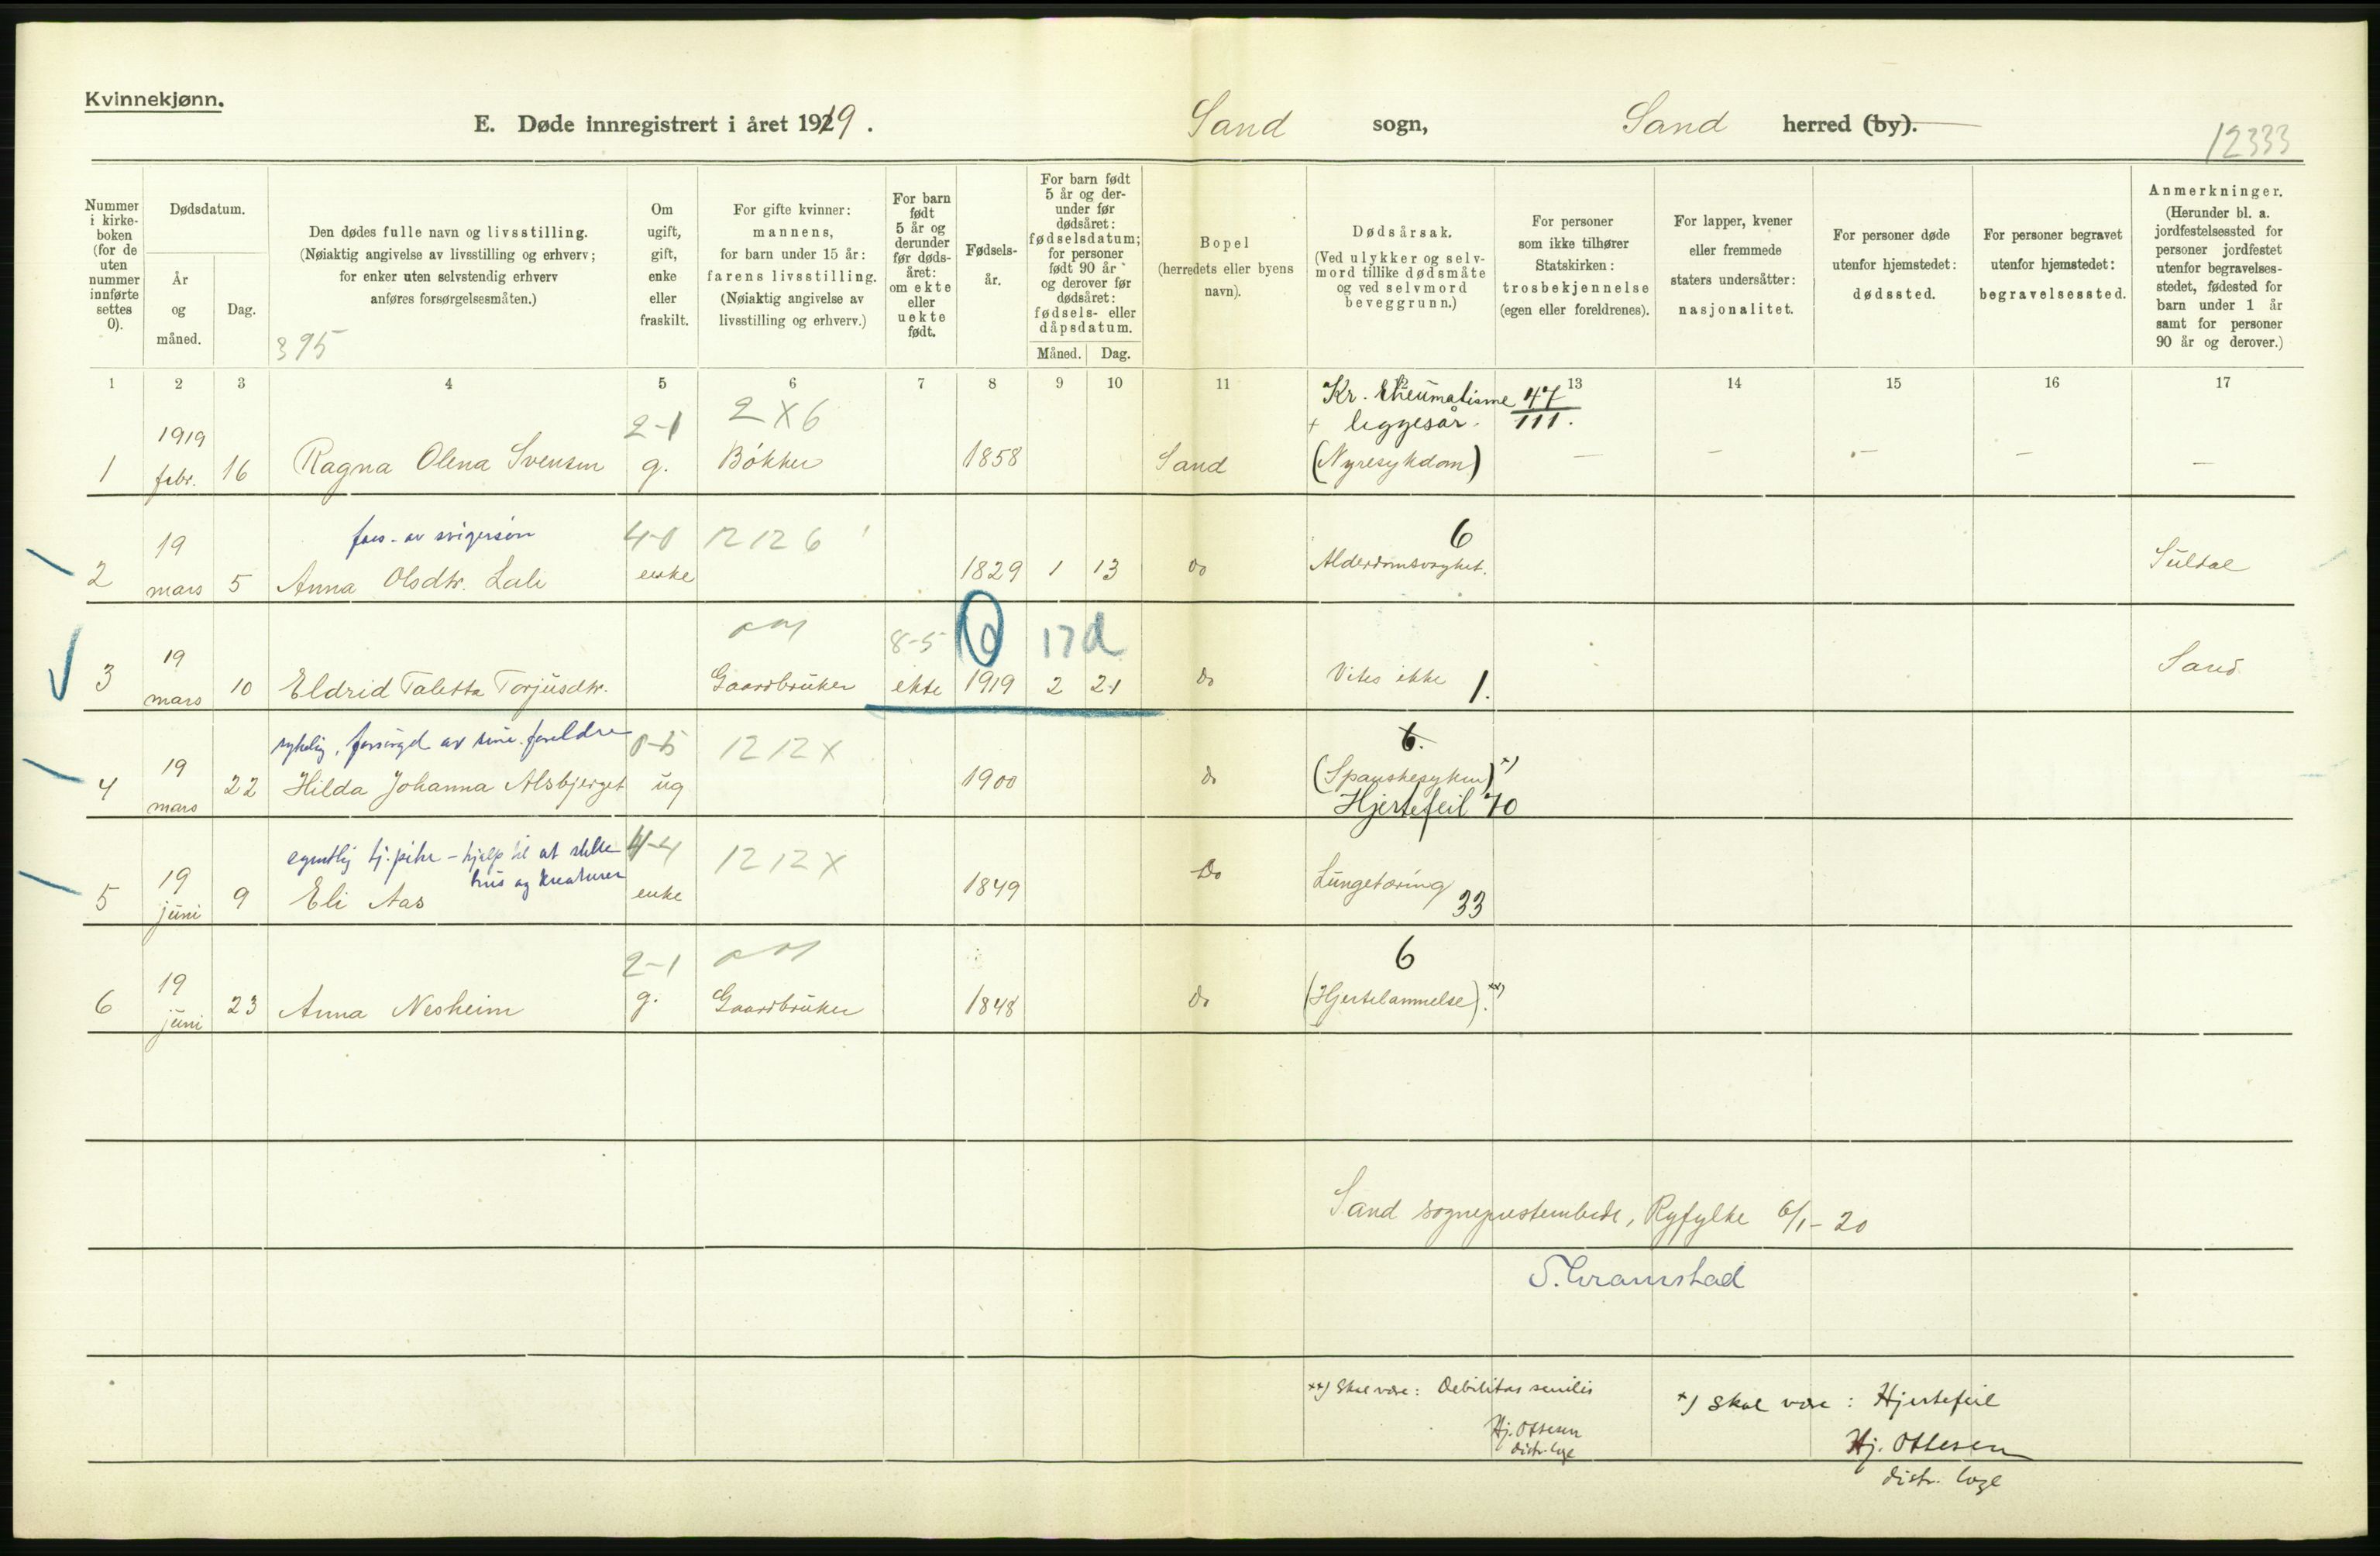 Kvinnekjønn.
E. Døde innregistrert i året 1919. Sand sogn, Sand herred (by).
12333
Nummer i kirkeboken (for de uten nummer innførte settes 0).
Dødsdatum.
År og måned.
Dag.
Den dødes fulle navn og livsstilling.
(Nøiaktig angivelse av livsstilling og erhverv;
for enker uten selvstendig erhverv
anføres forsørgelsesmåten.)
395
Om ugift, gift, enke eller fraskilt.
For gifte kvinner: mannens, for barn under 15 år: farens livsstilling. (Nøiaktig angivelse av livsstilling og erhverv.)
For barn født 5 år og derunder før dødsåret: om ekte eller uekte født.
Fødselsår.
For barn født 5 år og derunder før dødsåret: fødselsdatum; for personer født 90 år og derover før dødsåret: fødsels- eller dåpsdatum.
Måned. Dag.
Bopel (herredets eller byens navn).
Dødsårsak. (Ved ulykker og selvmord tillike dødsmåte og ved selvmord beveggrunn.)
For personer som ikke tilhører Statskirken: trosbekjennelse (egen eller foreldrenes).
For lapper, kvener eller fremmede staters undersåtter: nasjonalitet.
For personer døde utenfor hjemstedet: dødssted.
For personer begravet utenfor hjemstedet: begravelsessted.
Anmerkninger. (Herunder bl. a. jordfestelsessted for personer jordfestet utenfor begravelsesstedet, fødested for barn under 1 år samt for personer 90 år og derover.)
1 2 3 4 5 6 7 8 9 10 11 12 13 14 15 16 17
Kr. Rheumatisme 47
2-1 2 X 6 + liggesår. 111.
1919
1 febr. 16 Ragna Olena Svensen g. Bökker 1858 Sand (Nyresykdom) — — — — —
19 fors. av svigersøn 4-0 12 12 6 6
2 mars 5 Anna Olsdtr. Lali enke 1829 1 13 do Alderdomssvaghet. Suldal
19 8-5 17d
3 mars 10 Eldrid Taletta Torjusdtr. Gaardbruker ekte 1919 2 21 do Vites ikke 1. Sand
sykelig, forsørget av sine foreldre 0-5 12 12 X 6.
19
4 mars 22 Hilda Johanna Alsbjerget ug 1900 do (Spanskesyken) x)
Hjertefeil 70
egentlig tj.pike - hjelp til at stelle 4-4 12 12 X
hus og kreaturer
19
5 juni 9 Eli Aas enke 1849 Do Lungetæring 33
19 2-1 6
6 juni 23 Anna Nesheim g. Gaardbruker 1848 do (Hjertelammelse). xx)
Sand sogneprestembede, Ryfylke 6/1-20
xx) Skal være: Debilitas senilis
Hj. Ottesen
distr. læge
x) Skal være: Hjertefeil
Hj. Ottesen
distr. læge